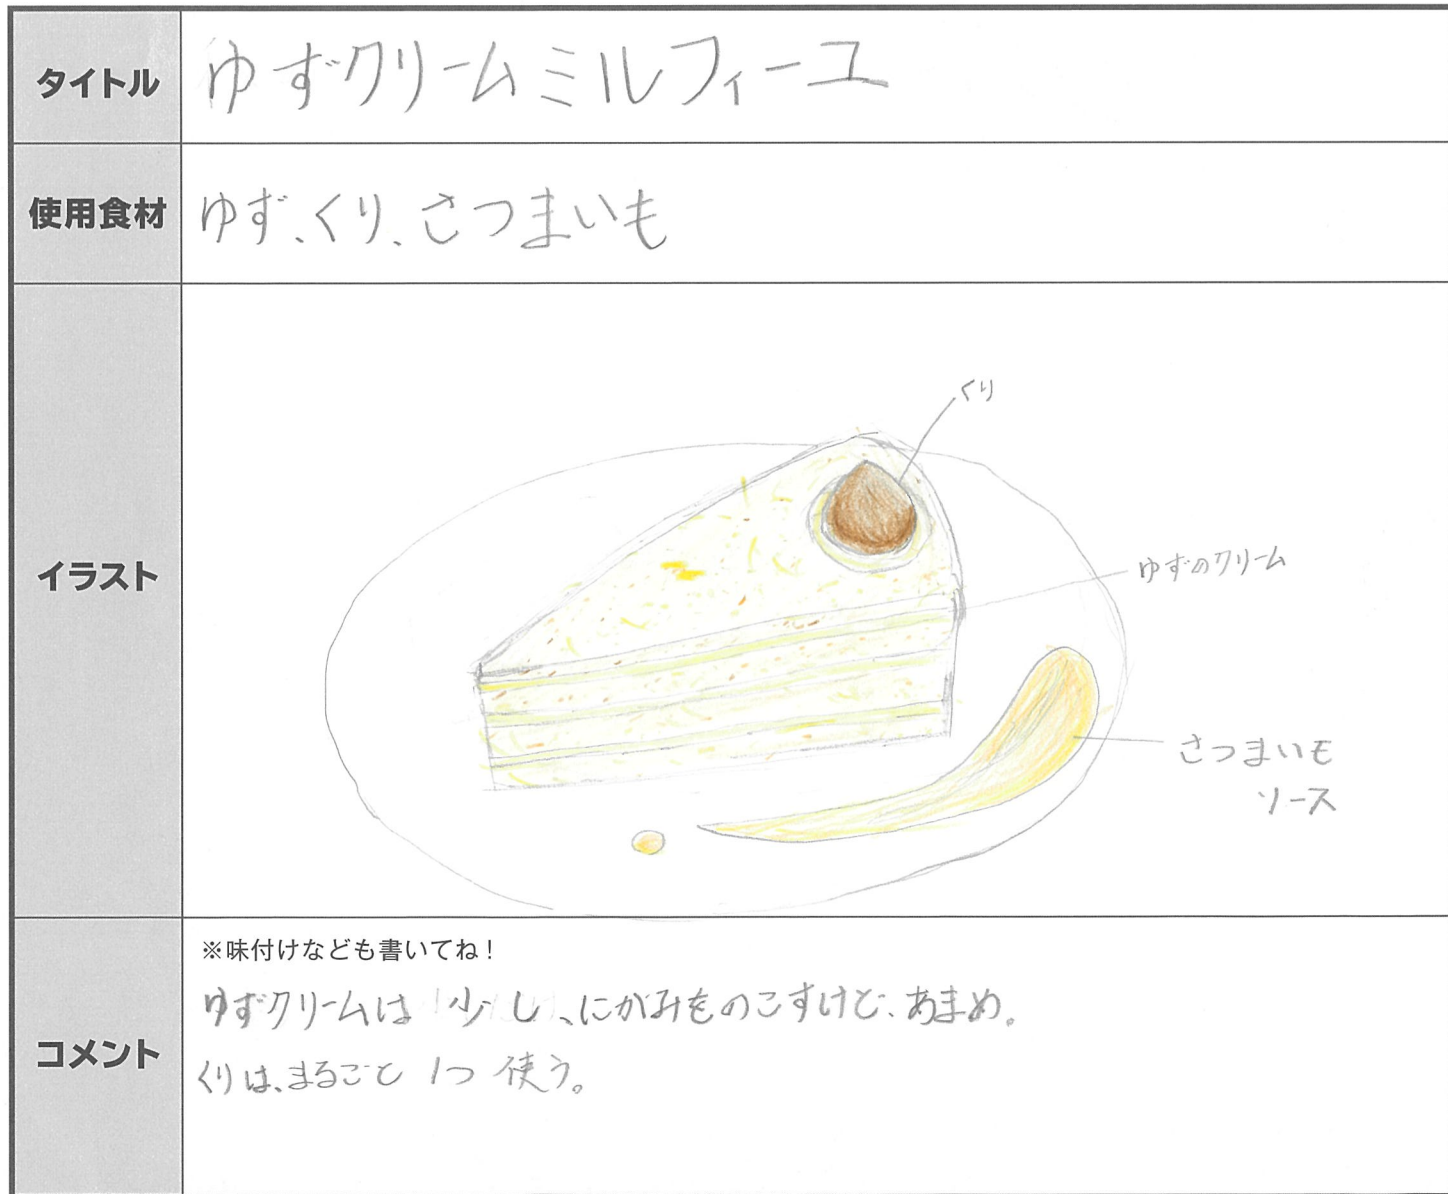 タイトル
ゆずクリームミルフィーユ
使用食材
ゆず、くり、さつまいも
イラスト
くり
ゆずのクリーム
さつまいも
ソース
コメント
※味付けなども書いてね!
ゆずクリームは 少し、にがみものこすけど、あまめ。
くりは、まるごと 1つ 使う。